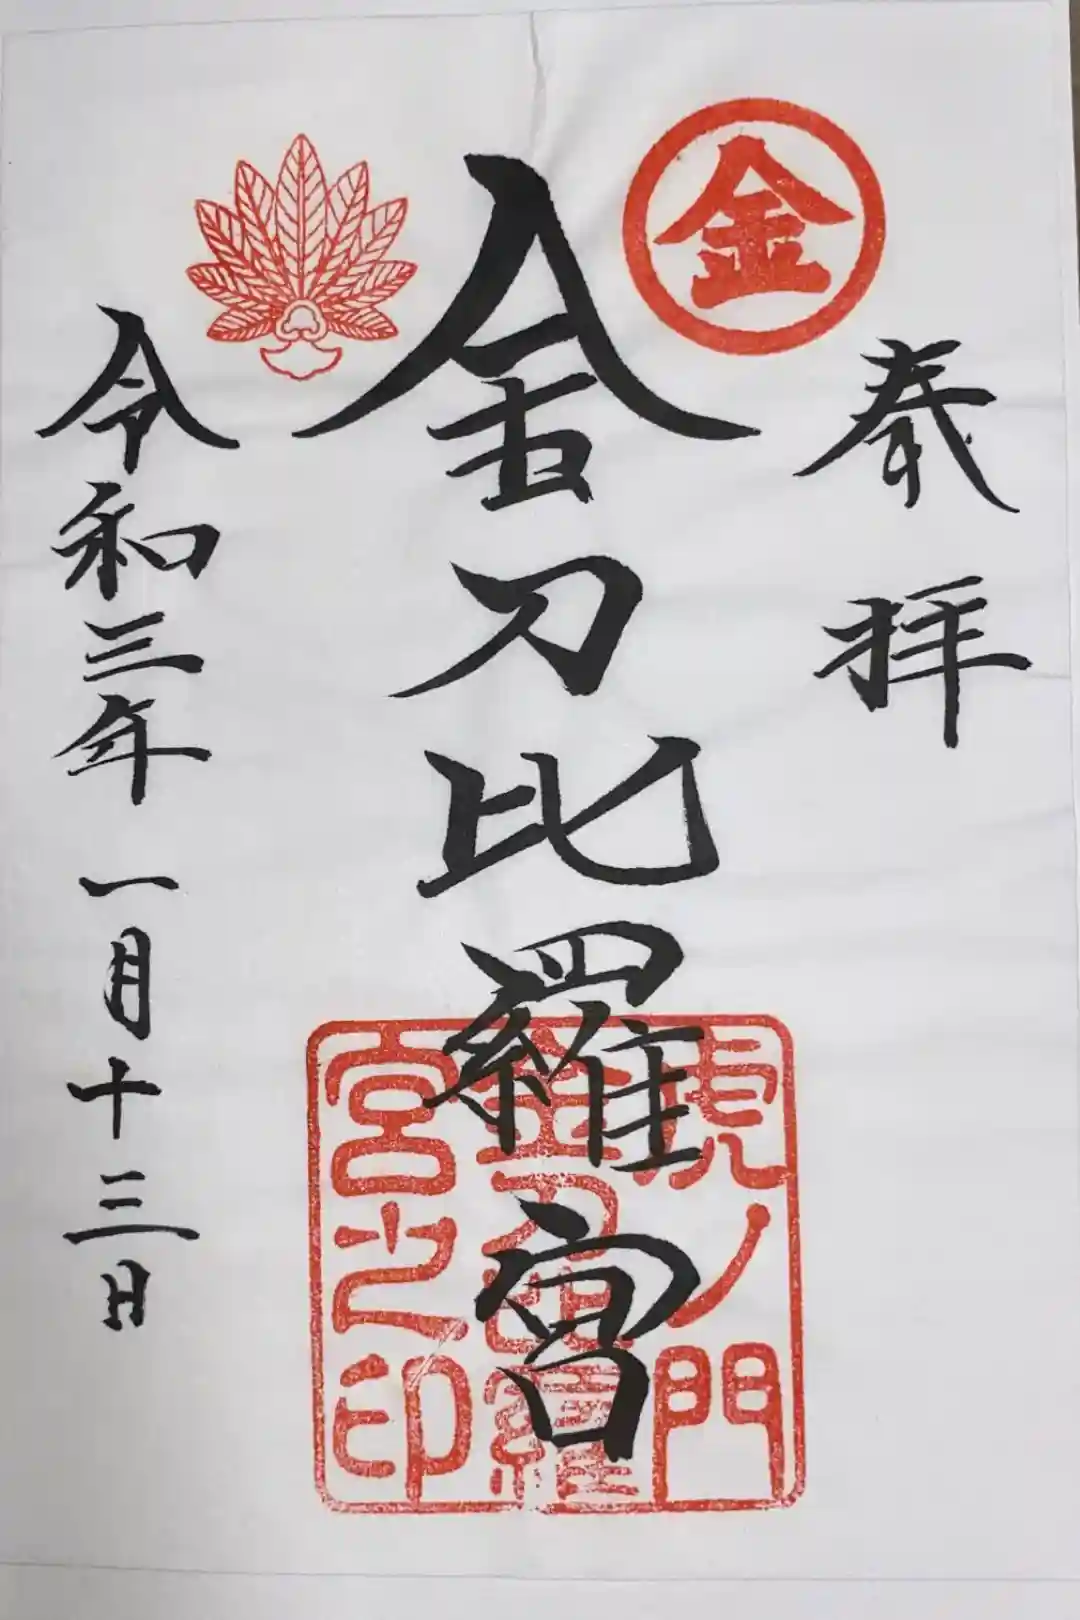 奉拝
金
金刀比羅宮
虎ノ門
金刀比羅
宮之印
令和三年一月十三日